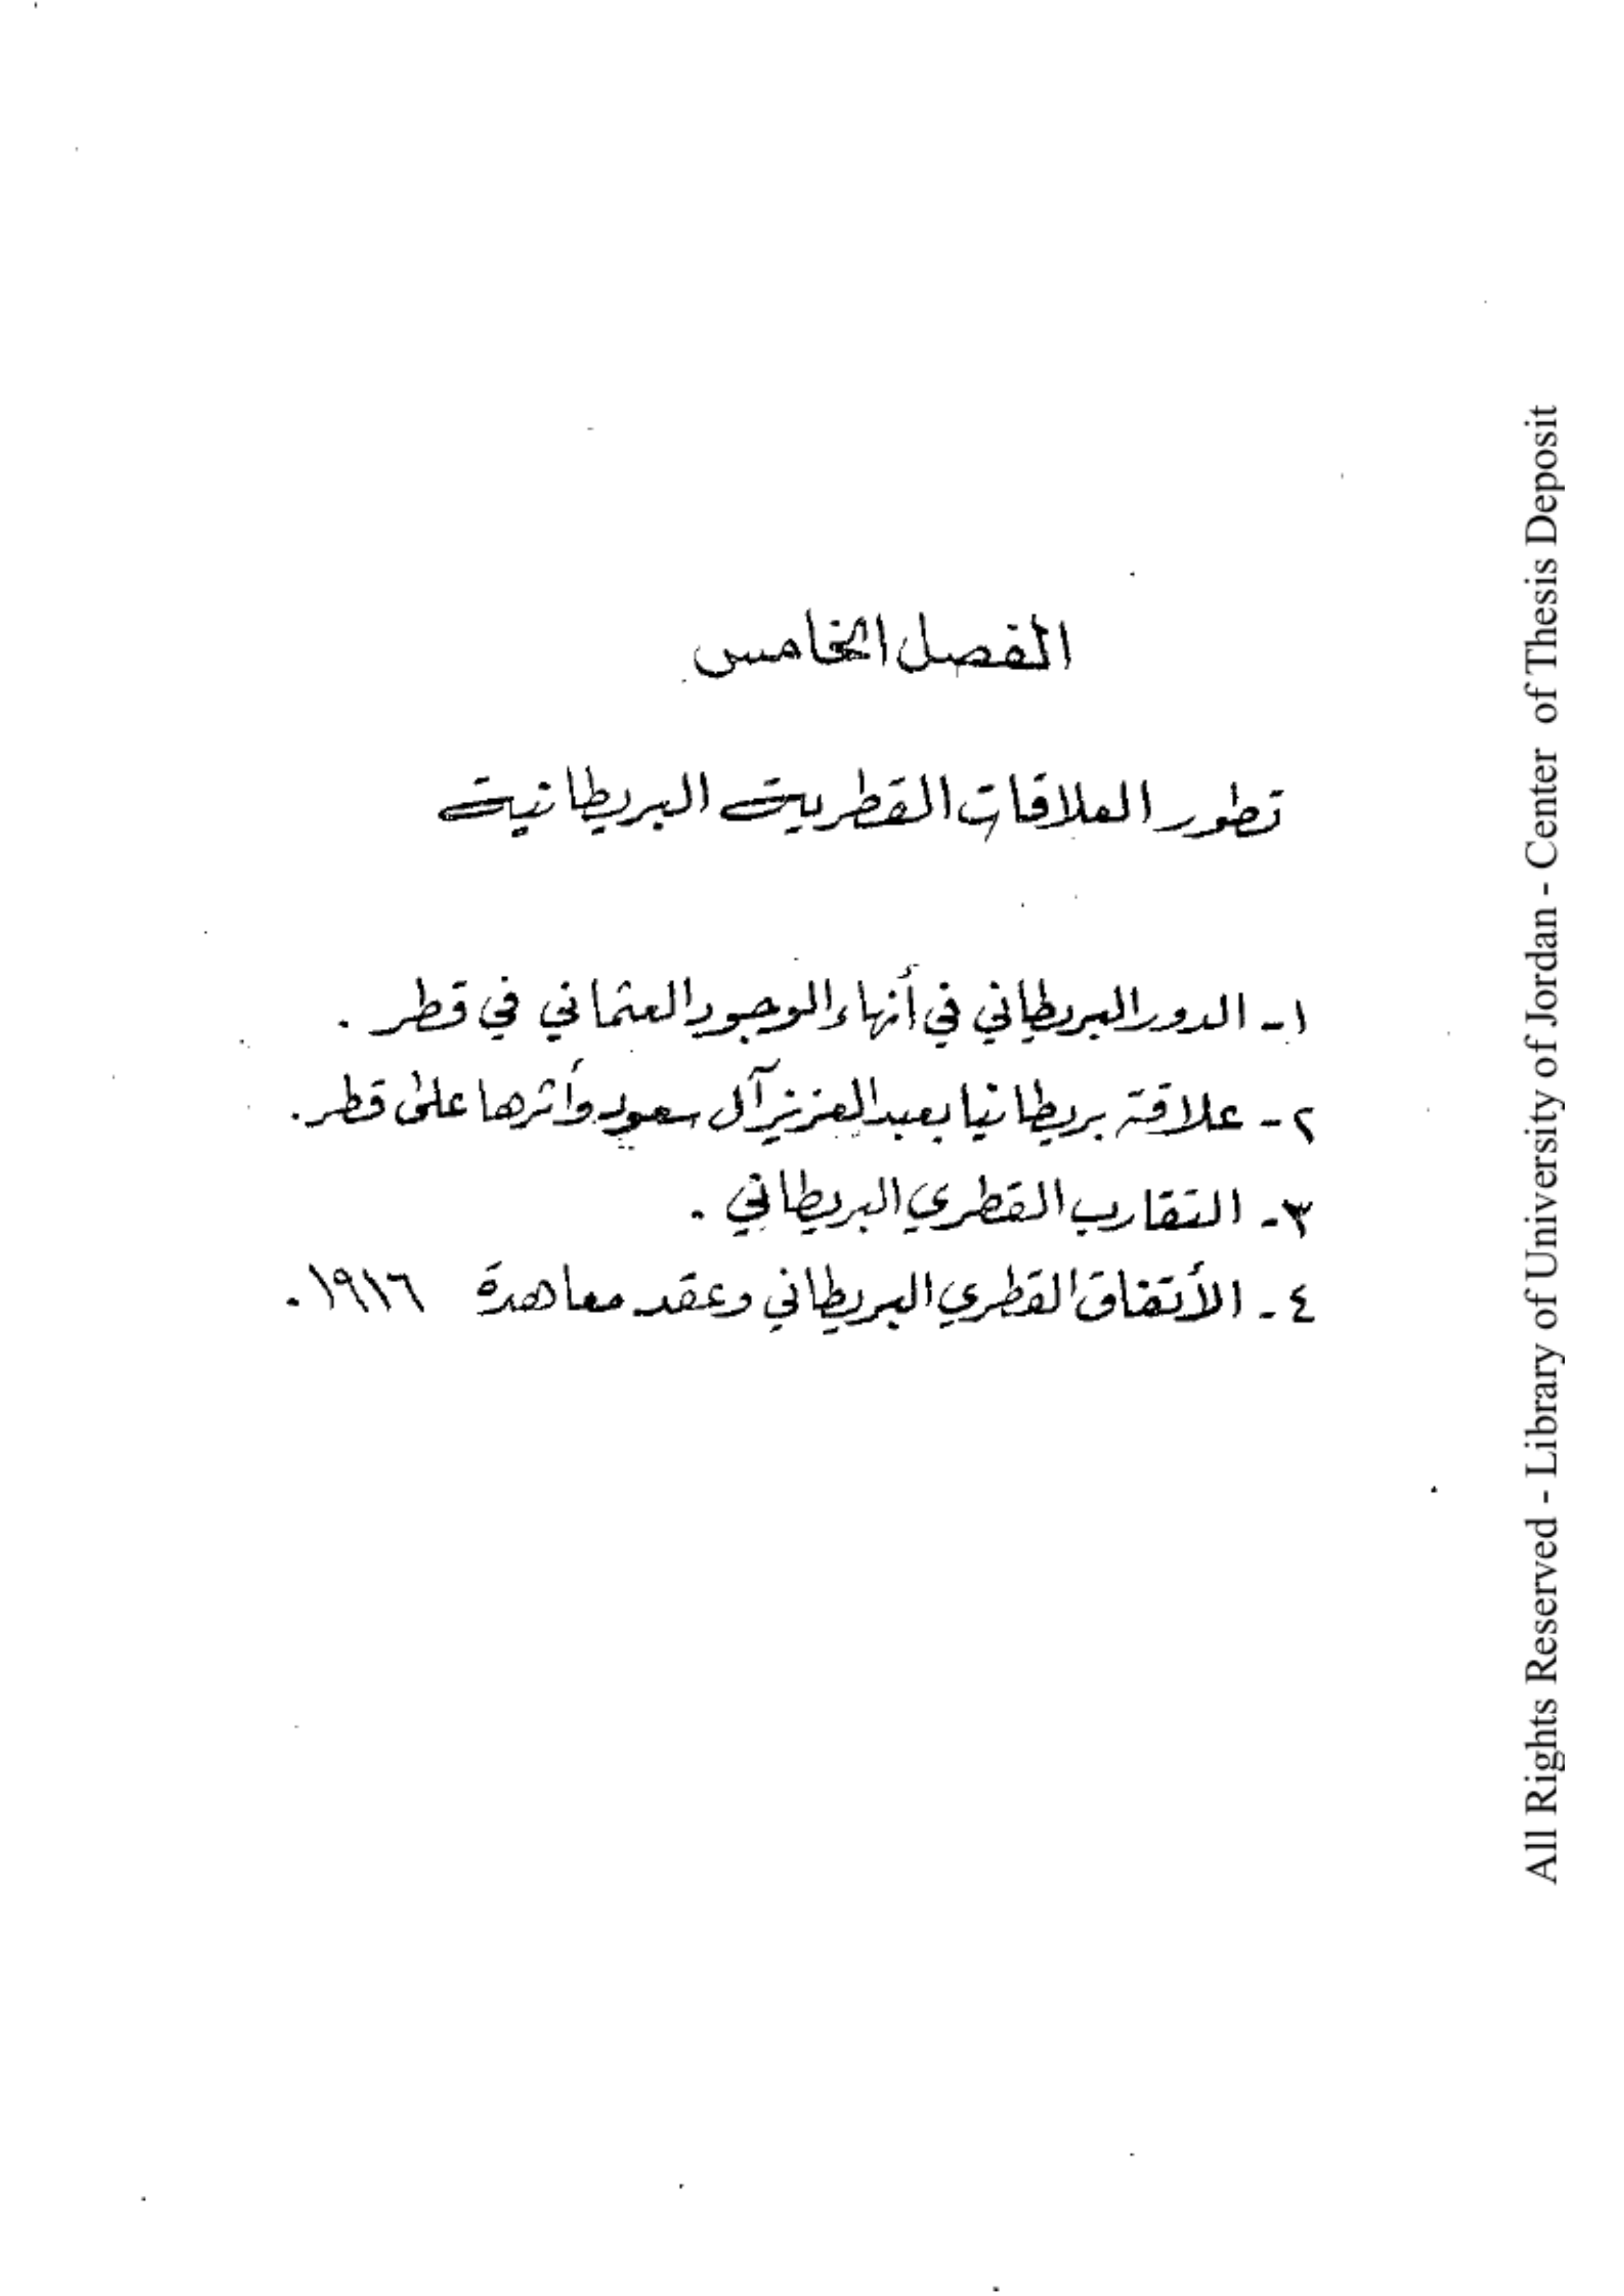 الفصل الخامس
تطور العلاقات القطرية البريطانية
١- الدور البريطاني في أنهاء الوجود العثماني في قطر .
٢- علاقة بريطانيا بعبد العزيز آل سعود وأثرها على قطر.
٣- التقارب القطري البريطاني .
٤- الأتفاق القطري البريطاني وعقد معاهدة ١٩١٦ .
All Rights Reserved - Library of University of Jordan - Center of Thesis Deposit